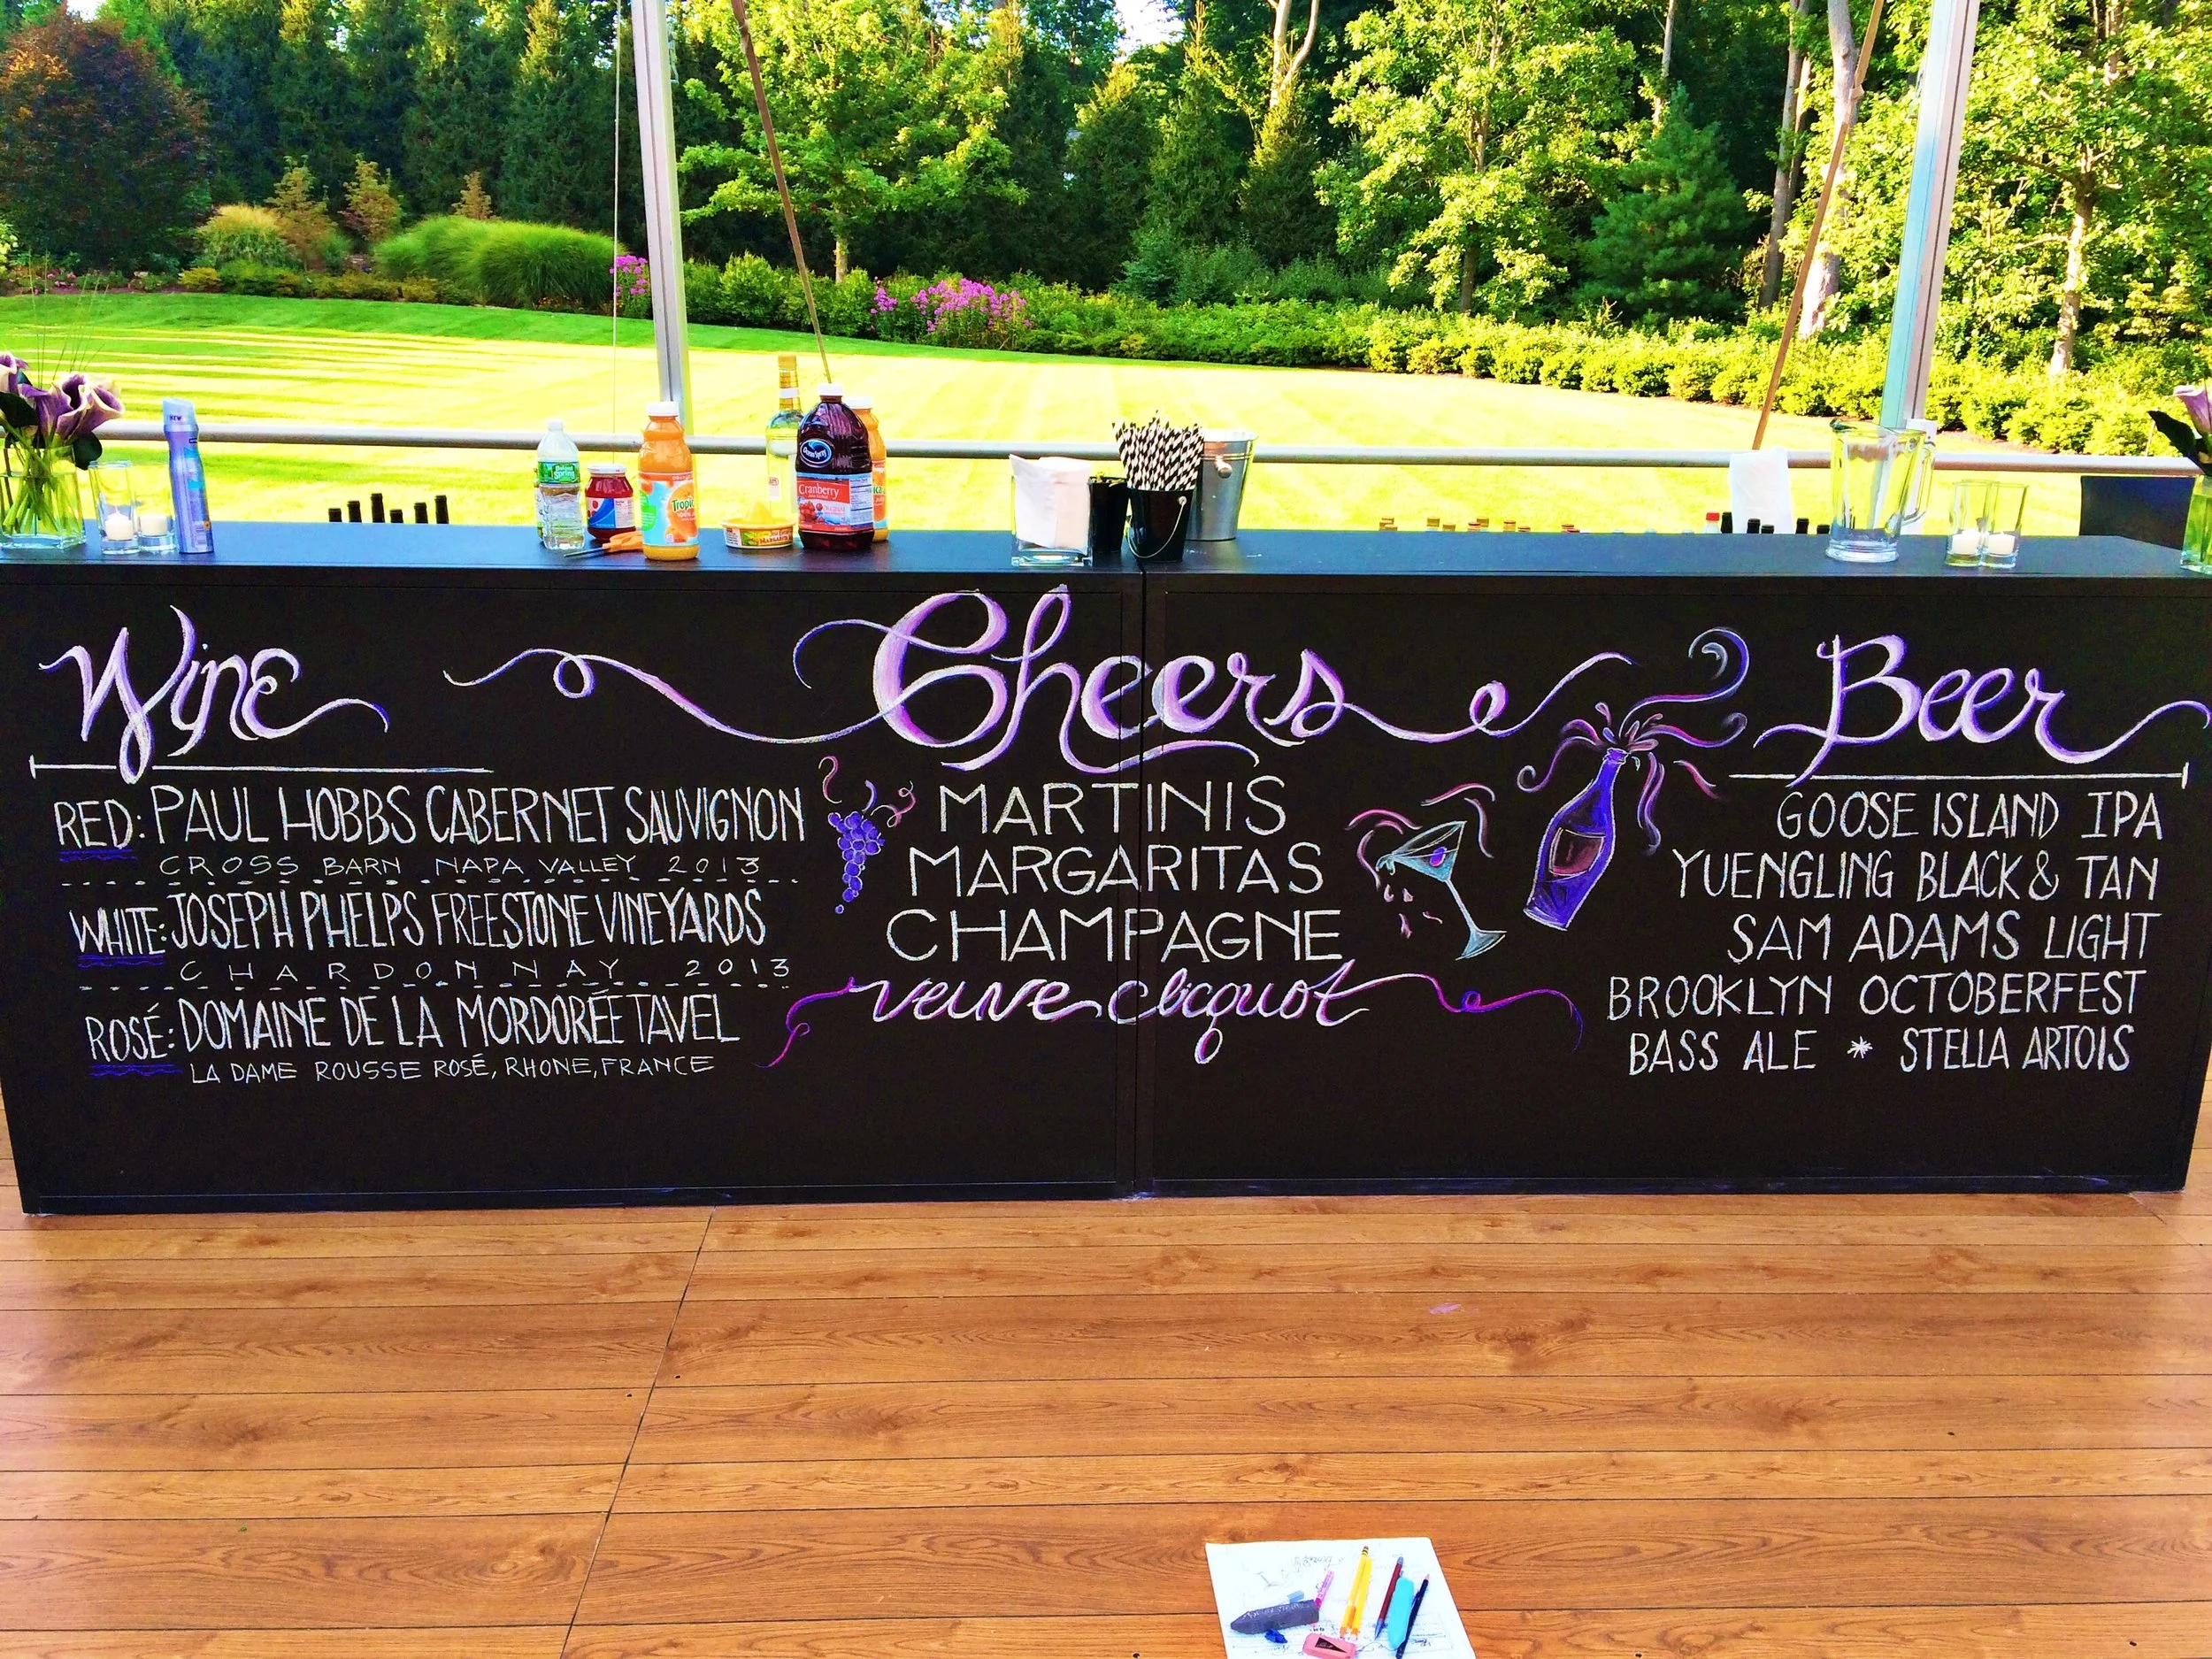 NEW
Poland Spring
Tropicana
Ocean Spray
Cranberry
MARGARITA
Wine
RED: PAUL HOBBS CABERNET SAUVIGNON
CROSS BARN NAPA VALLEY 2013
WHITE: JOSEPH PHELPS FREESTONE VINEYARDS
CHARDONNAY 2013
ROSÉ: DOMAINE DE LA MORDORÉE TAVEL
LA DAME ROUSSE ROSÉ, RHONE, FRANCE
Cheers
MARTINIS
MARGARITAS
CHAMPAGNE
veuve clicquot
Beer
GOOSE ISLAND IPA
YUENGLING BLACK & TAN
SAM ADAMS LIGHT
BROOKLYN OCTOBERFEST
BASS ALE * STELLA ARTOIS